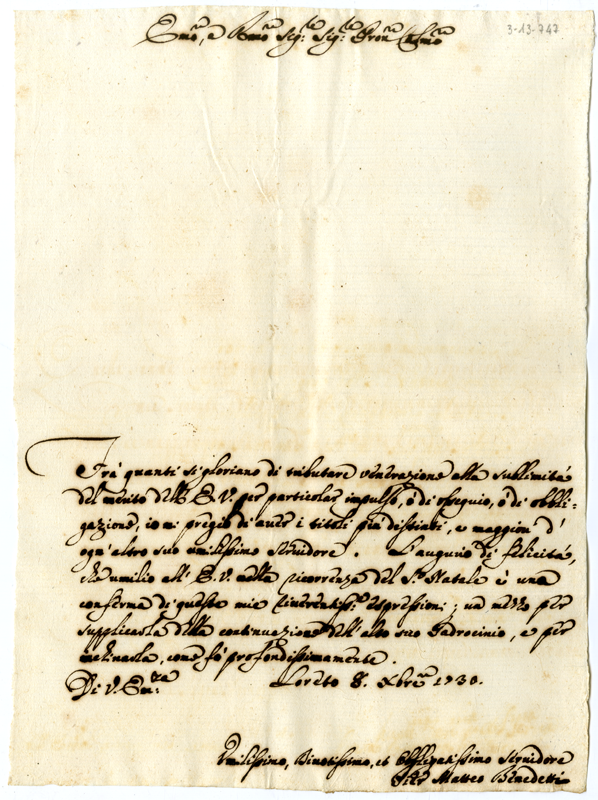 Em.o, e Rm.o Sig.re Sig.re Pron. Col.mo
3-13-747
Frà quanti si gloriano di tributare venerazione alla sublimità
del merito dell' E. V. per particolar impulso, ò di ossequio, ò di obbli=
gazione, io mi pregio di aver i titoli più distinti, e maggiori d'
ogn'altro suo umilissimo servidore. L'augurio di felicità,
che umilio all' E. V. nella ricorrenza del S. Natale è una
conferma di queste mie riverentiss.e espressioni; ed mezzo per
supplicarla della continuazione dell' alto suo Padrocinio, e per
inchinarla, come fò profondissimamente.
Di V. Em.za Loreto 8. Xbre 1730.
Umilissimo, Divotissimo, et Obbligatissimo Servidore
Matteo Benedetti